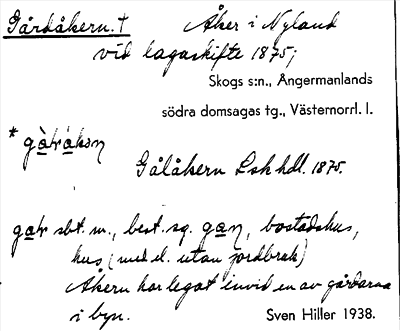 Gårdåkern. † Åker i Nyland
vid lagaskifte 1875;
Skogs s:n., Ångermanlands
södra domsagas tg., Västernorrl. l.
Gålåkern Lskhdl. 1875.
sbt. m., best. sg. bostadshus,
hus (med el. utan jordbruk)
Åkern har legat invid en av gårdarna
i byn. Sven Hiller 1938.